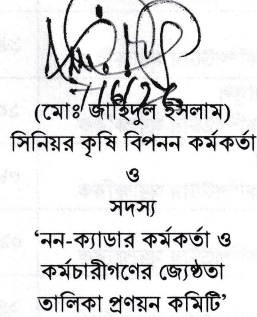 (মোঃ জাহিদুল ইসলাম)
সিনিয়র কৃষি বিপনন কর্মকর্তা
ও
সদস্য
‘নন-ক্যাডার কর্মকর্তা ও
কর্মচারীগণের জ্যেষ্ঠতা
তালিকা প্রণয়ন কমিটি’